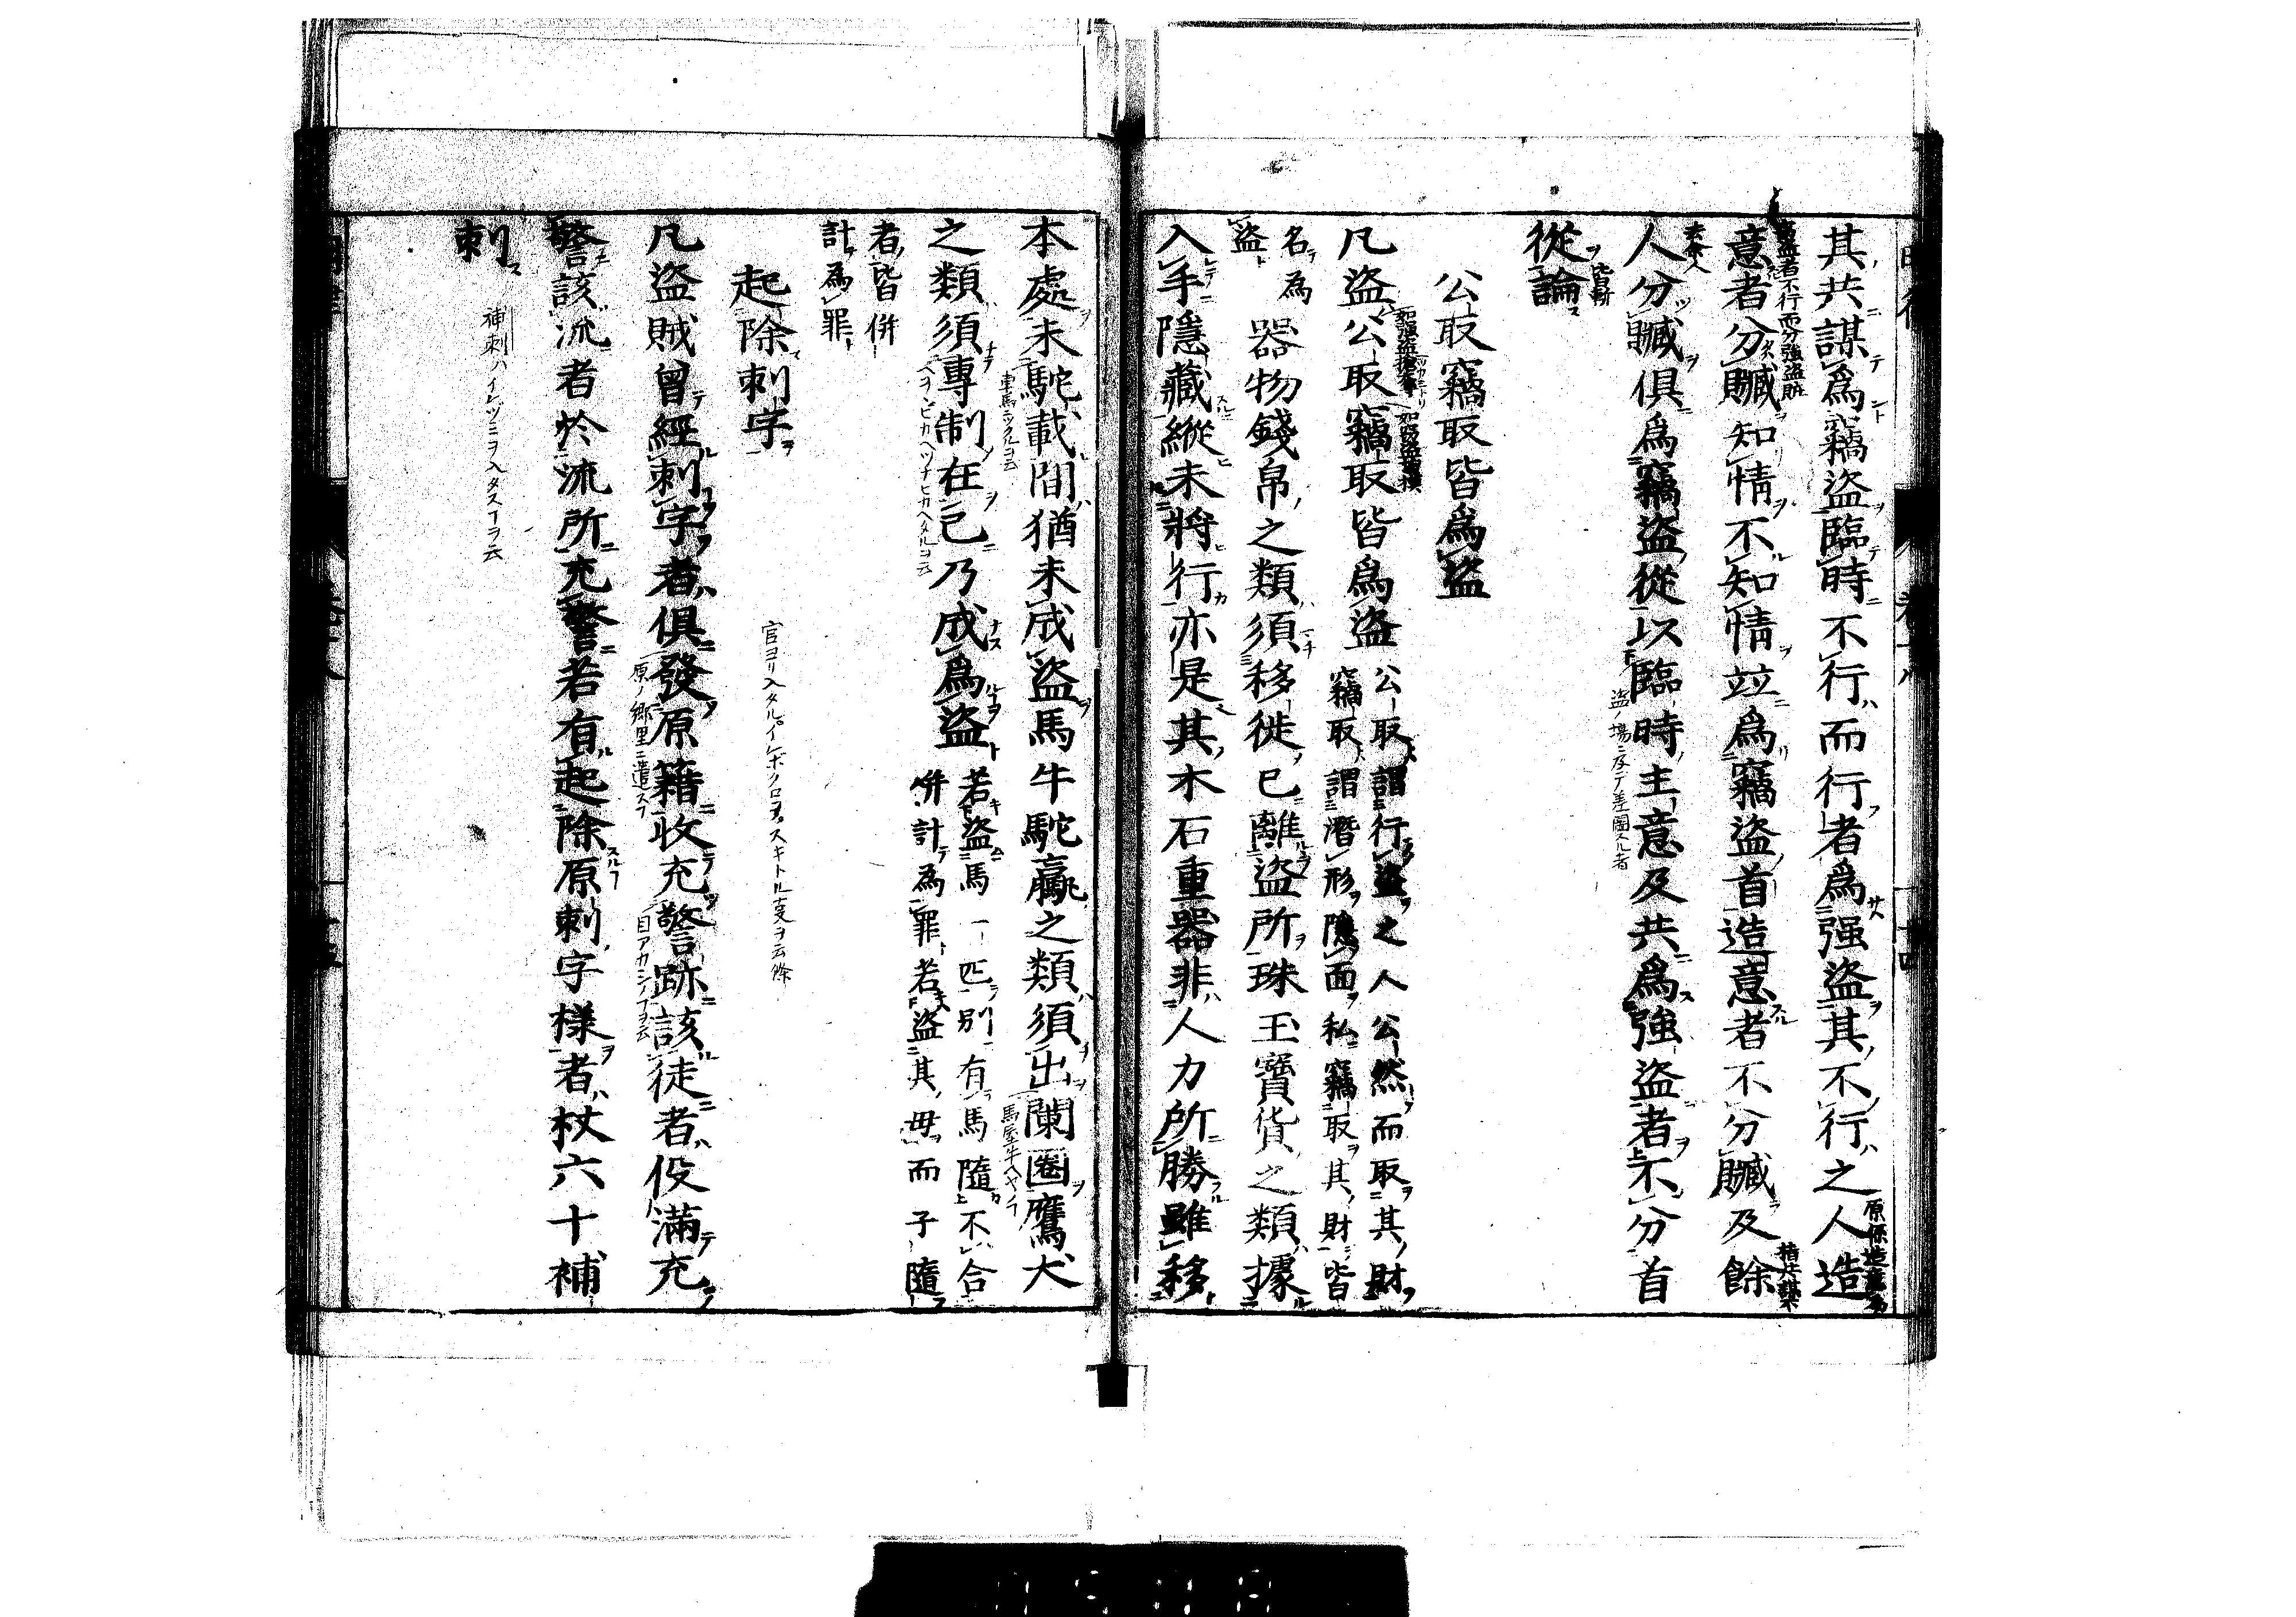 其共謀爲竊盜臨時不行而行者爲强盜其不行之人造
意者分贓知情不知情竝爲竊盜首造意者不分贓及餘
人分贓俱爲竊盜從以臨時主意及共爲強盜者不分首
從論
公取竊取皆爲盜
凡盜公取竊取皆爲盜
公取謂行盜之人公然而取其財
竊取謂潛形隱面私竊取其財皆
名爲
盜
器物錢帛之類須移徙已離盜所珠玉寶貨之類據
入手隱藏縱未將行亦是其木石重器非人力所勝雖移
本處未駝載間猶未成盜馬牛駝臝之類須出闌圈鷹犬
之類須專制在己乃成爲盜
若盜馬一匹別有馬隨不合
併計為罪若盜其母而子隨
者皆併
計為罪
起除刺字
官ヨリ入タルイレボクロヲスキトル叓ヲ云條
凡盜賊曾經刺字者俱發原籍收充警跡該徒者役滿充
原ノ郷里ニ遣ス
警該流者於流所充警若有起除原刺字樣者杖六十補
刺
補刺ハイレズミヲ入タスヿヲ云